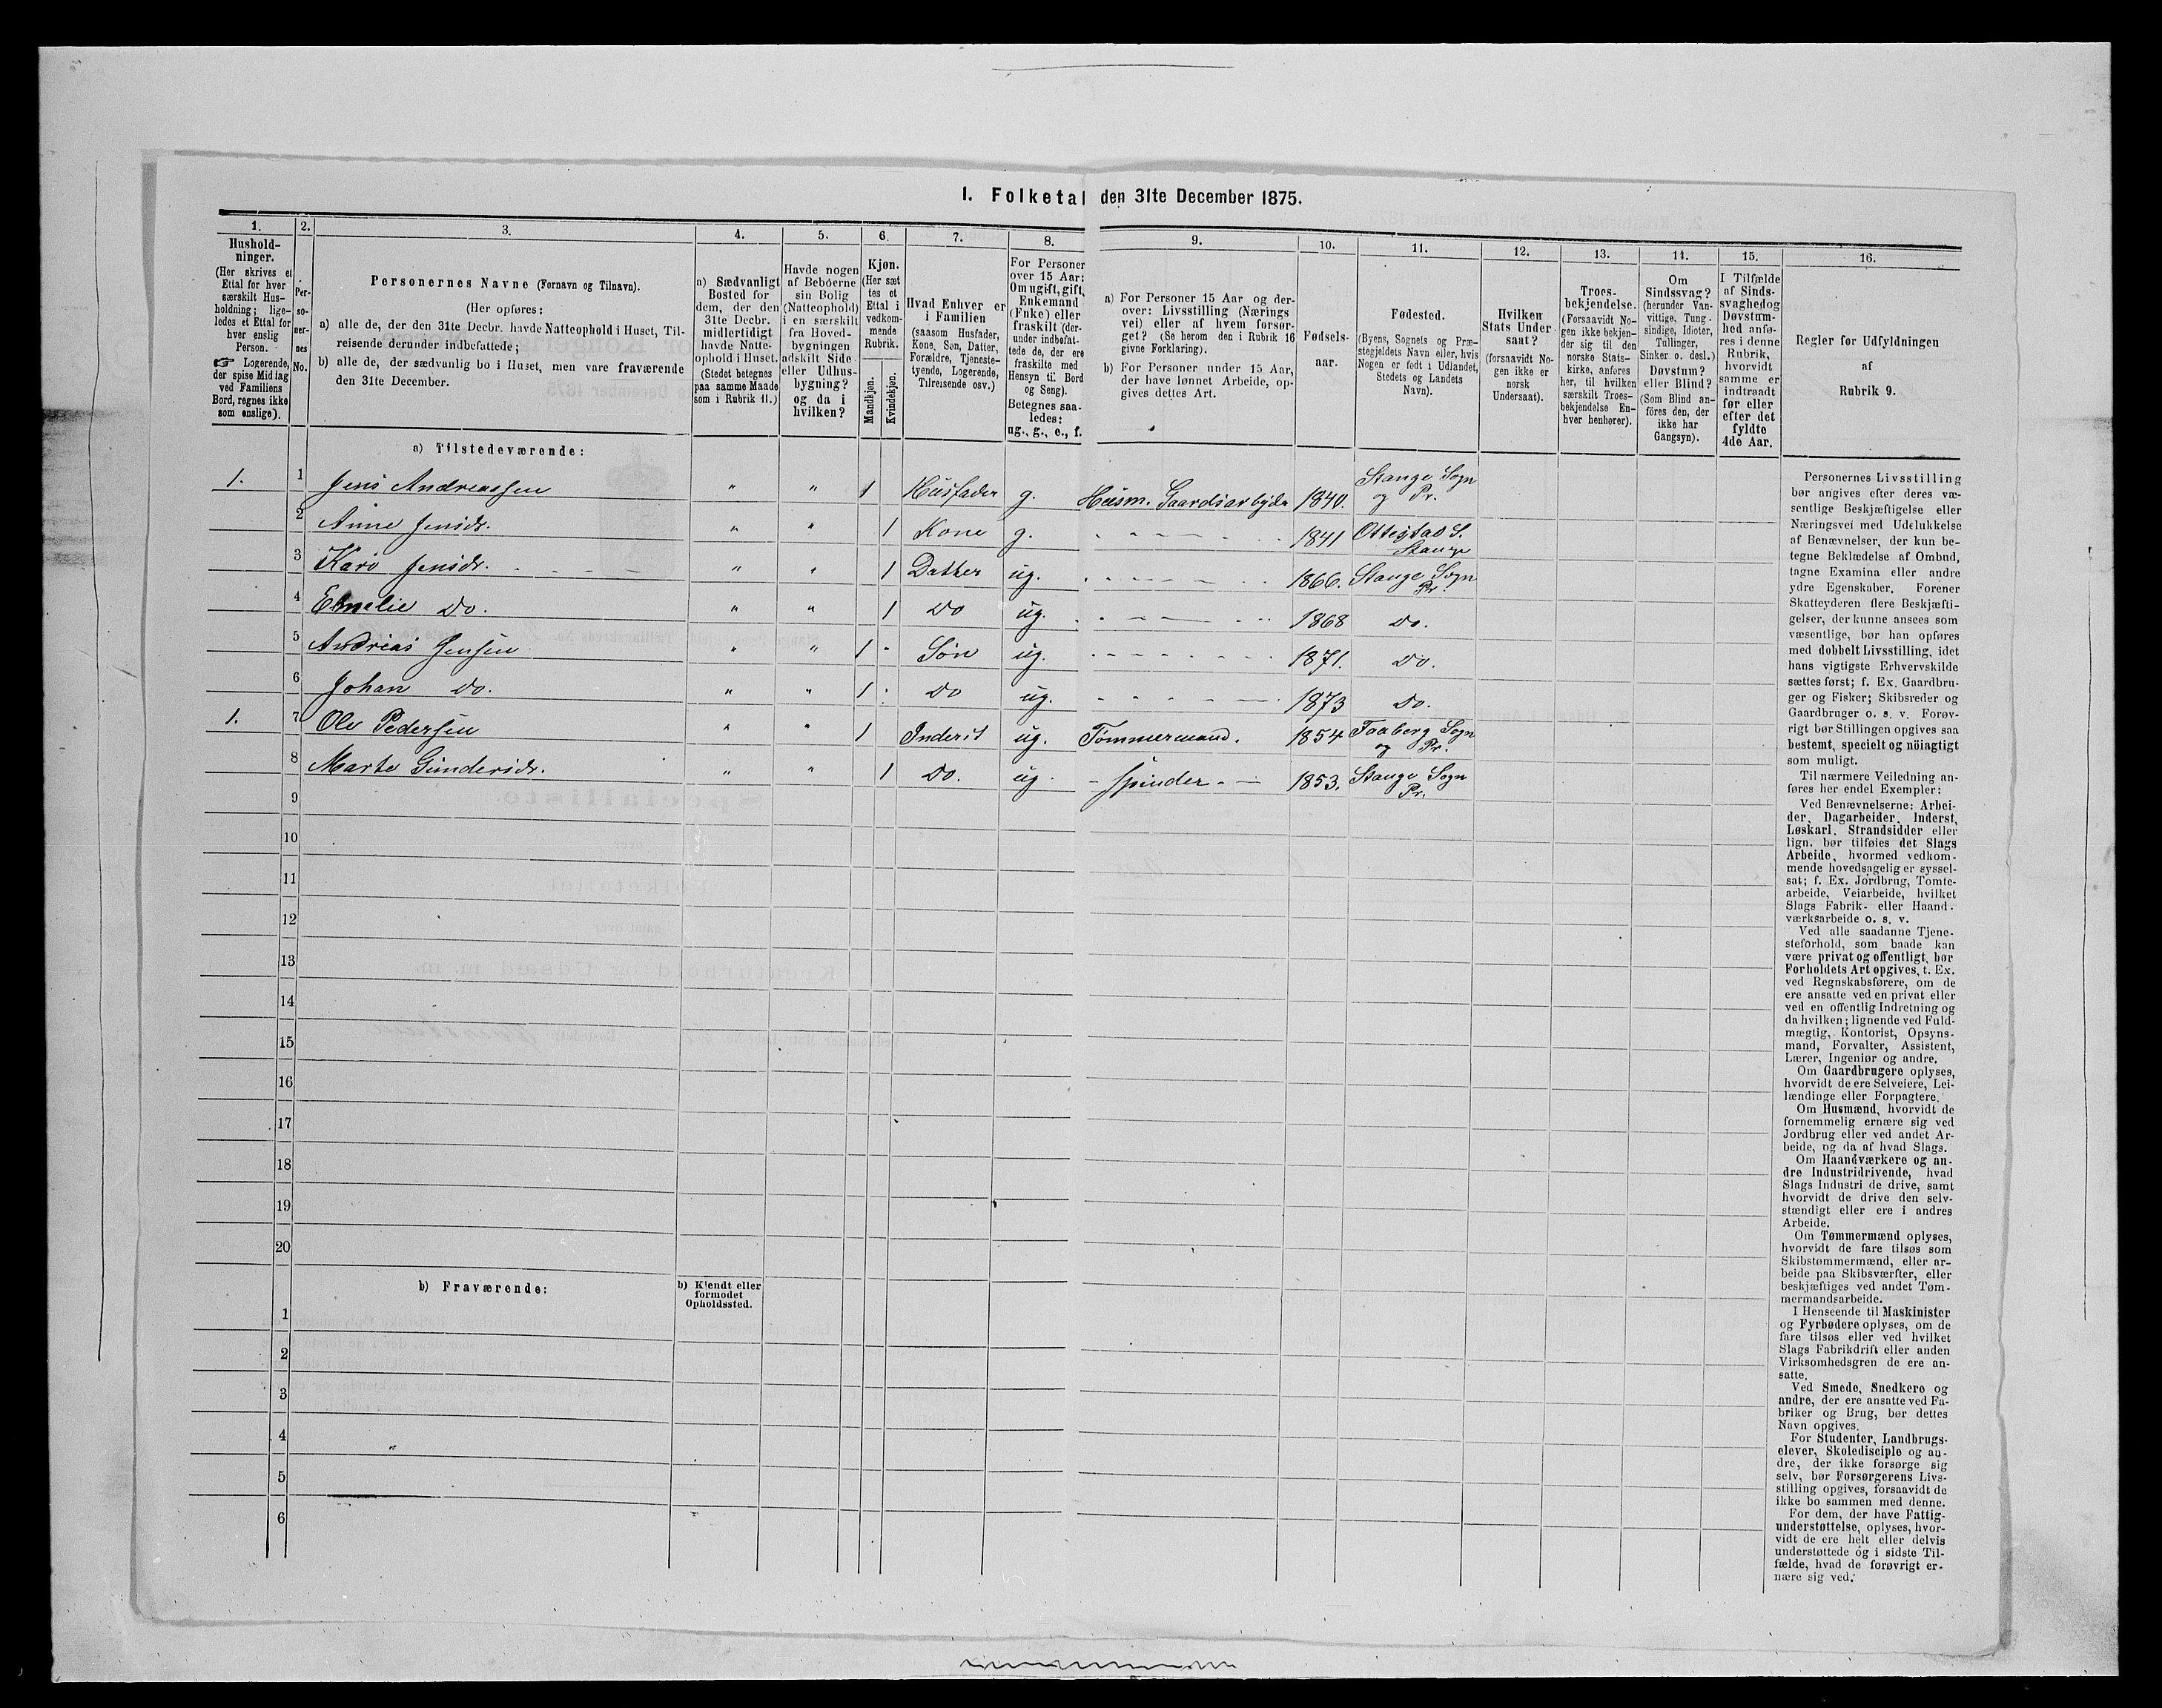 1. Folketal den 31te December 1875.
1.
Hushold-
ninger.
(Her skrives et
Ettal for hver
særskilt Hus-
holdning; lige-
ledes et Ettal for
hver enslig
Person.
☞ Logerende,
der spise Middag
ved Familiens
Bord, regnes ikke
som enslige).
2.
Per-
so-
ner-
nes
No.
3.
Personernes Navne (Fornavn og Tilnavn).
(Her opføres:
a) alle de, der den 31te Decbr. havde Natteophold i Huset, Til-
reisende derunder indbefattede;
b) alle de, der sædvanlig bo i Huset, men vare fraværende
den 31te December.
4.
a) Sædvanligt
Bosted for
dem, der den
31te Decbr.
midlertidigt
havde Natte-
ophold i Huset.
(Stedet betegnes
paa samme Maade
som i Rubrik 11.)
5.
Havde nogen
af Beboerne
sin Bolig
(Natteophold)
i en særskilt
fra Hoved-
bygningen
adskilt Side-
eller Udhus-
bygning?
og da i
hvilken?
6.
Kjøn.
(Her sæt
tes et
Ettal i
vedkom-
mende
Rubrik.
Mandkjøn.
Kvindekjøn.
7.
Hvad Enhver er
i Familien
(saasom Husfader,
Kone, Søn, Datter,
Forældre, Tjeneste-
tyende, Logerende,
Tilreisende osv.)
8.
For Personer
over 15 Aar:
Om ugift, gift,
Enkemand
(Enke) eller
fraskilt (der-
under indbefat-
tede de, der ere
fraskilte med
Hensyn til Bord
og Seng).
Betegnes saa-
ledes:
ug., g., e., f.
9.
a) For Personer 15 Aar og der-
over: Livsstilling (Nærings
vei) eller af hvem forsør-
get? (Se herom den i Rubrik 16
givne Forklaring).
b) For Personer under 15 Aar,
der have lønnet Arbeide, op-
gives dettes Art.
10.
Fødsels-
aar.
11.
Fødested.
(Byens, Sognets og Præ-
stegjeldets Navn eller, hvis
Nogen er født i Udlandet,
Stedets og Landets
Navn).
12.
Hvilken
Stats Under-
saat?
(forsaavidt No-
gen ikke er
norsk
Undersaat).
13.
Troes-
bekjendelse.
(Forsaavidt No-
gen ikke bekjen-
der sig til den
norske Stats-
kirke, anføres
her, til hvilken
særskilt Troes-
bekjendelse En-
hver henhører).
14.
Om
Sindssvag?
(herunder Van-
vittige, Tung-
sindige, Idioter,
Tullinger,
Sinker o. desl.)
Døvstum?
eller Blind?
(Som Blind an-
føres den, der
ikke har
Gangsyn).
15.
I Tilfælde
af Sinds-
svaghed og
Døvstum-
hed anfø-
res i denne
Rubrik,
hvorvidt
samme er
indtraadt
før eller
efter det
fyldte
4de Aar.
16.
Regler for Udfyldningen
af
Rubrik 9.
a) Tilstedeværende:
1. 1 Jens Andreassen " " 1 Husfader g. Husm. Gaardsarbejde 1840. Stange Sogn
og Pr.
2 Anne Jensdr. " " 1 Kone g. 1841 Ottestad S.
Stange
3 Kari Jensdr. " " 1 Datter ug. 1866. Stange Sogn
Pr.
4 Emelie Do. " " 1 Do ug. 1868 Do.
5 Andreas Jensen " " 1 Søn ug. 1871. Do.
6 Johan Do. " " 1 Do ug. 1873 Do.
1. 7 Ole Pedersen " " 1 Inderst ug. Tømmermand. 1854 Faaberg Sogn
og Pr.
8 Marte Gundersdr. " " 1 Do. ug. - Spinder - 1853. Stange Sogn
Pr.
9
10
11
12
13
14
15
16
17
18
19
20
b) Fraværende:
b) Kjendt eller
formodet
Opholdssted.
1
2
3
4
5
6
Personernes Livsstilling
bør angives efter deres væ-
sentlige Beskjæftigelse eller
Næringsvei med Udelukkelse
af Benævnelser, der kun be-
tegne Beklædelse af Ombud,
tagne Examina eller andre
ydre Egenskaber. Forener
Skatteyderen flere Beskjæfti-
gelser, der kunne ansees som
væsentlige, bør han opføres
med dobbelt Livsstilling, idet
hans vigtigste Erhvervskilde
sættes først; f. Ex. Gaardbru-
ger og Fisker; Skibsreder og
Gaardbruger o. s. v. Forøv-
rigt bør Stillingen opgives saa
bestemt, specielt og nöiagtigt
som muligt.
Til nærmere Veiledning an-
føres her endel Exempler:
Ved Benævnelserne: Arbei-
der, Dagarbeider, Inderst,
Løskarl, Strandsidder eller
lign. bør tilføies det Slags
Arbeide, hvormed vedkom-
mende hovedsagelig er syssel-
sat; f. Ex. Jordbrug, Tomte-
arbeide, Veiarbeide, hvilket
Slags Fabrik- eller Haand-
værksarbeide o. s. v.
Ved alle saadanne Tjene-
steforhold, som baade kan
være privat og offentligt, bør
Forholdets Art opgives, t. Ex.
ved Regnskabsførere, om de
ere ansatte ved en privat eller
ved en offentlig Indretning og
da hvilken; lignende ved Fuld-
mægtig, Kontorist, Opsyns-
mand, Forvalter, Assistent,
Lærer, Ingeniør og andre.
Om Gaardbrugere oplyses,
hvorvidt de ere Selveiere, Lei-
lændinge eller Forpagtere.
Om Husmænd, hvorvidt de
fornemmelig ernære sig ved
Jordbrug eller ved andet Ar-
beide, og da af hvad Slags.
Om Haandværkere og an-
dre Industridrivende, hvad
Slags Industri de drive, samt
hvorvidt de drive den selv-
stændigt eller ere i andres
Arbeide.
Om Tømmermænd oplyses,
hvorvidt de fare tilsøs som
Skibstømmermænd, eller ar-
beide paa Skibsværfter, eller
beskjæftiges ved andet Tøm-
mermandsarbeide.
I Henseende til Maskinister
og Fyrbødere oplyses, om de
fare tilsøs eller ved hvilket
Slags Fabrikdrift eller anden
Virksomhedsgren de ere an-
satte.
Ved Smede, Snedkere og
andre, der ere ansatte ved Fa-
briker og Brug, bør dettes
Navn opgives.
For Studenter, Landbrugs-
elever, Skoledisciple og an-
dre, der ikke forsørge sig
selv, bør Forsørgerens Livs-
stilling opgives, forsaavidt de
ikke bo sammen med denne.
For dem, der have Fattig-
understøttelse, oplyses, hvor-
vidt de ere helt eller delvis
understøttede og i sidste Til-
fælde, hvad de forøvrigt er-
nære sig ved.